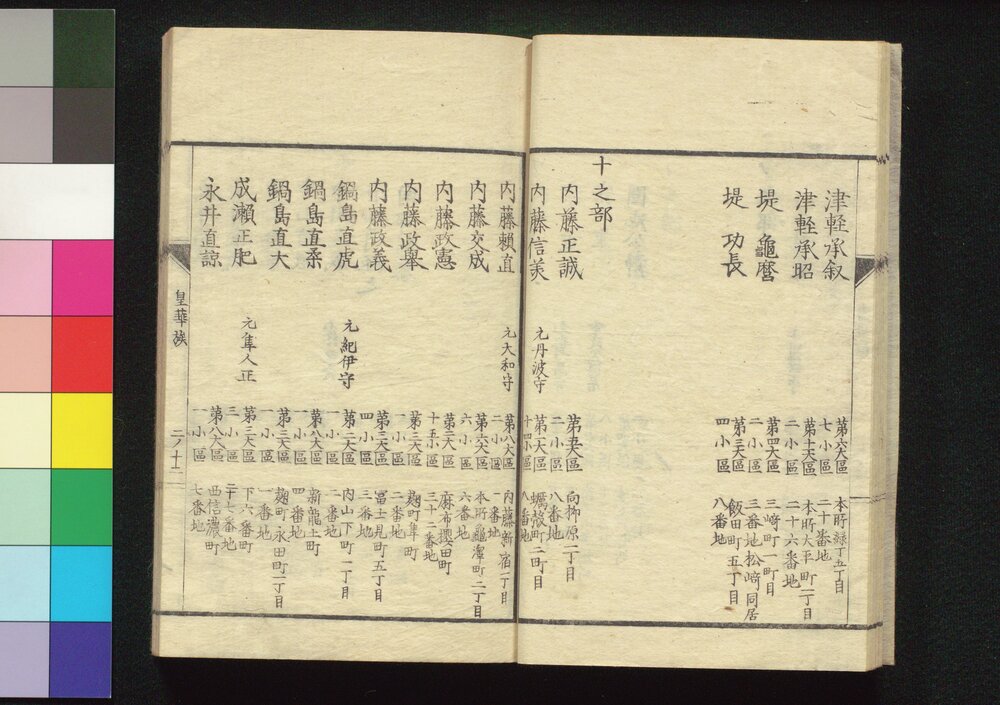 津軽承叙 第六大區 七小區 本所緑丁五丁目 二十番地
津軽承昭 第十大區 二小區 本所太平町一丁目 二十六番地
堤亀麿 第四大區 二小區 三崎町一丁目 三番地松﨑同居
堤功長 第三大區 四小區 飯田町五丁目 八番地
十之部
内藤正誠 第五大區 二小區 向柳原二丁目 八番地
内藤信美 元丹波守 第一大區 十四小區 蠣殻町二丁目 八番地
内藤頼直 元大和守 第八大區 二小區 内藤新宿一丁目 一番地
内藤文成 第六大區 六小區 本所龜澤町二丁目 六番地
内藤政憲 第二大區 十五小區 麻布櫻田町 三十二番地
内藤政擧 第三大區 一小區 麹町隼町 二番地
内藤政義 第三大區 四小區 冨士見町五丁目 三番地
鍋島直虎 元紀伊守 第一大區 一小區 内山下町一丁目 二番地
鍋島直柔 第八大區 一小區 新龍土町 四番地
鍋島直大 第三大區 一小區 麹町永田町一丁目 一番地
成瀬正肥 元隼人正 第三大區 三小區 下六番町 二十七番地
永井直諒 第八大區 一小區 西信濃町 七番地
皇華族 二ノ十二